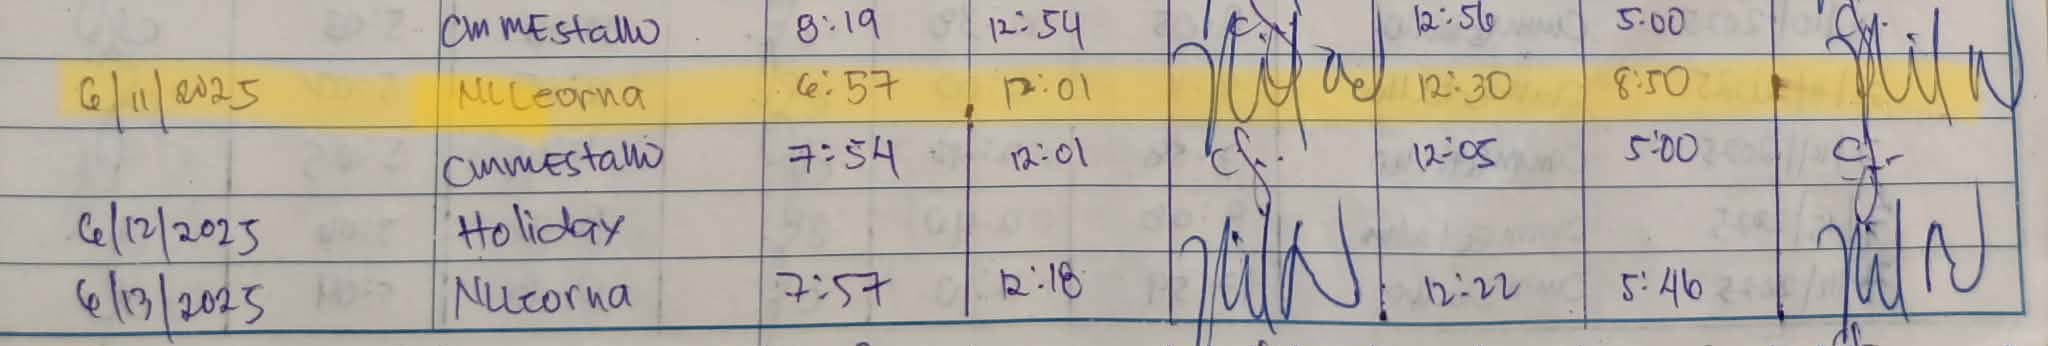 CMMEstallo 8:19 12:54 12:56 5:00
6/11/2025 NLLeorna 6:57 12:01 12:30 8:50
CMMEstallo 7:54 12:01 12:05 5:00
6/12/2025 Holiday
6/13/2025 NLLeorna 7:57 12:18 12:22 5:46